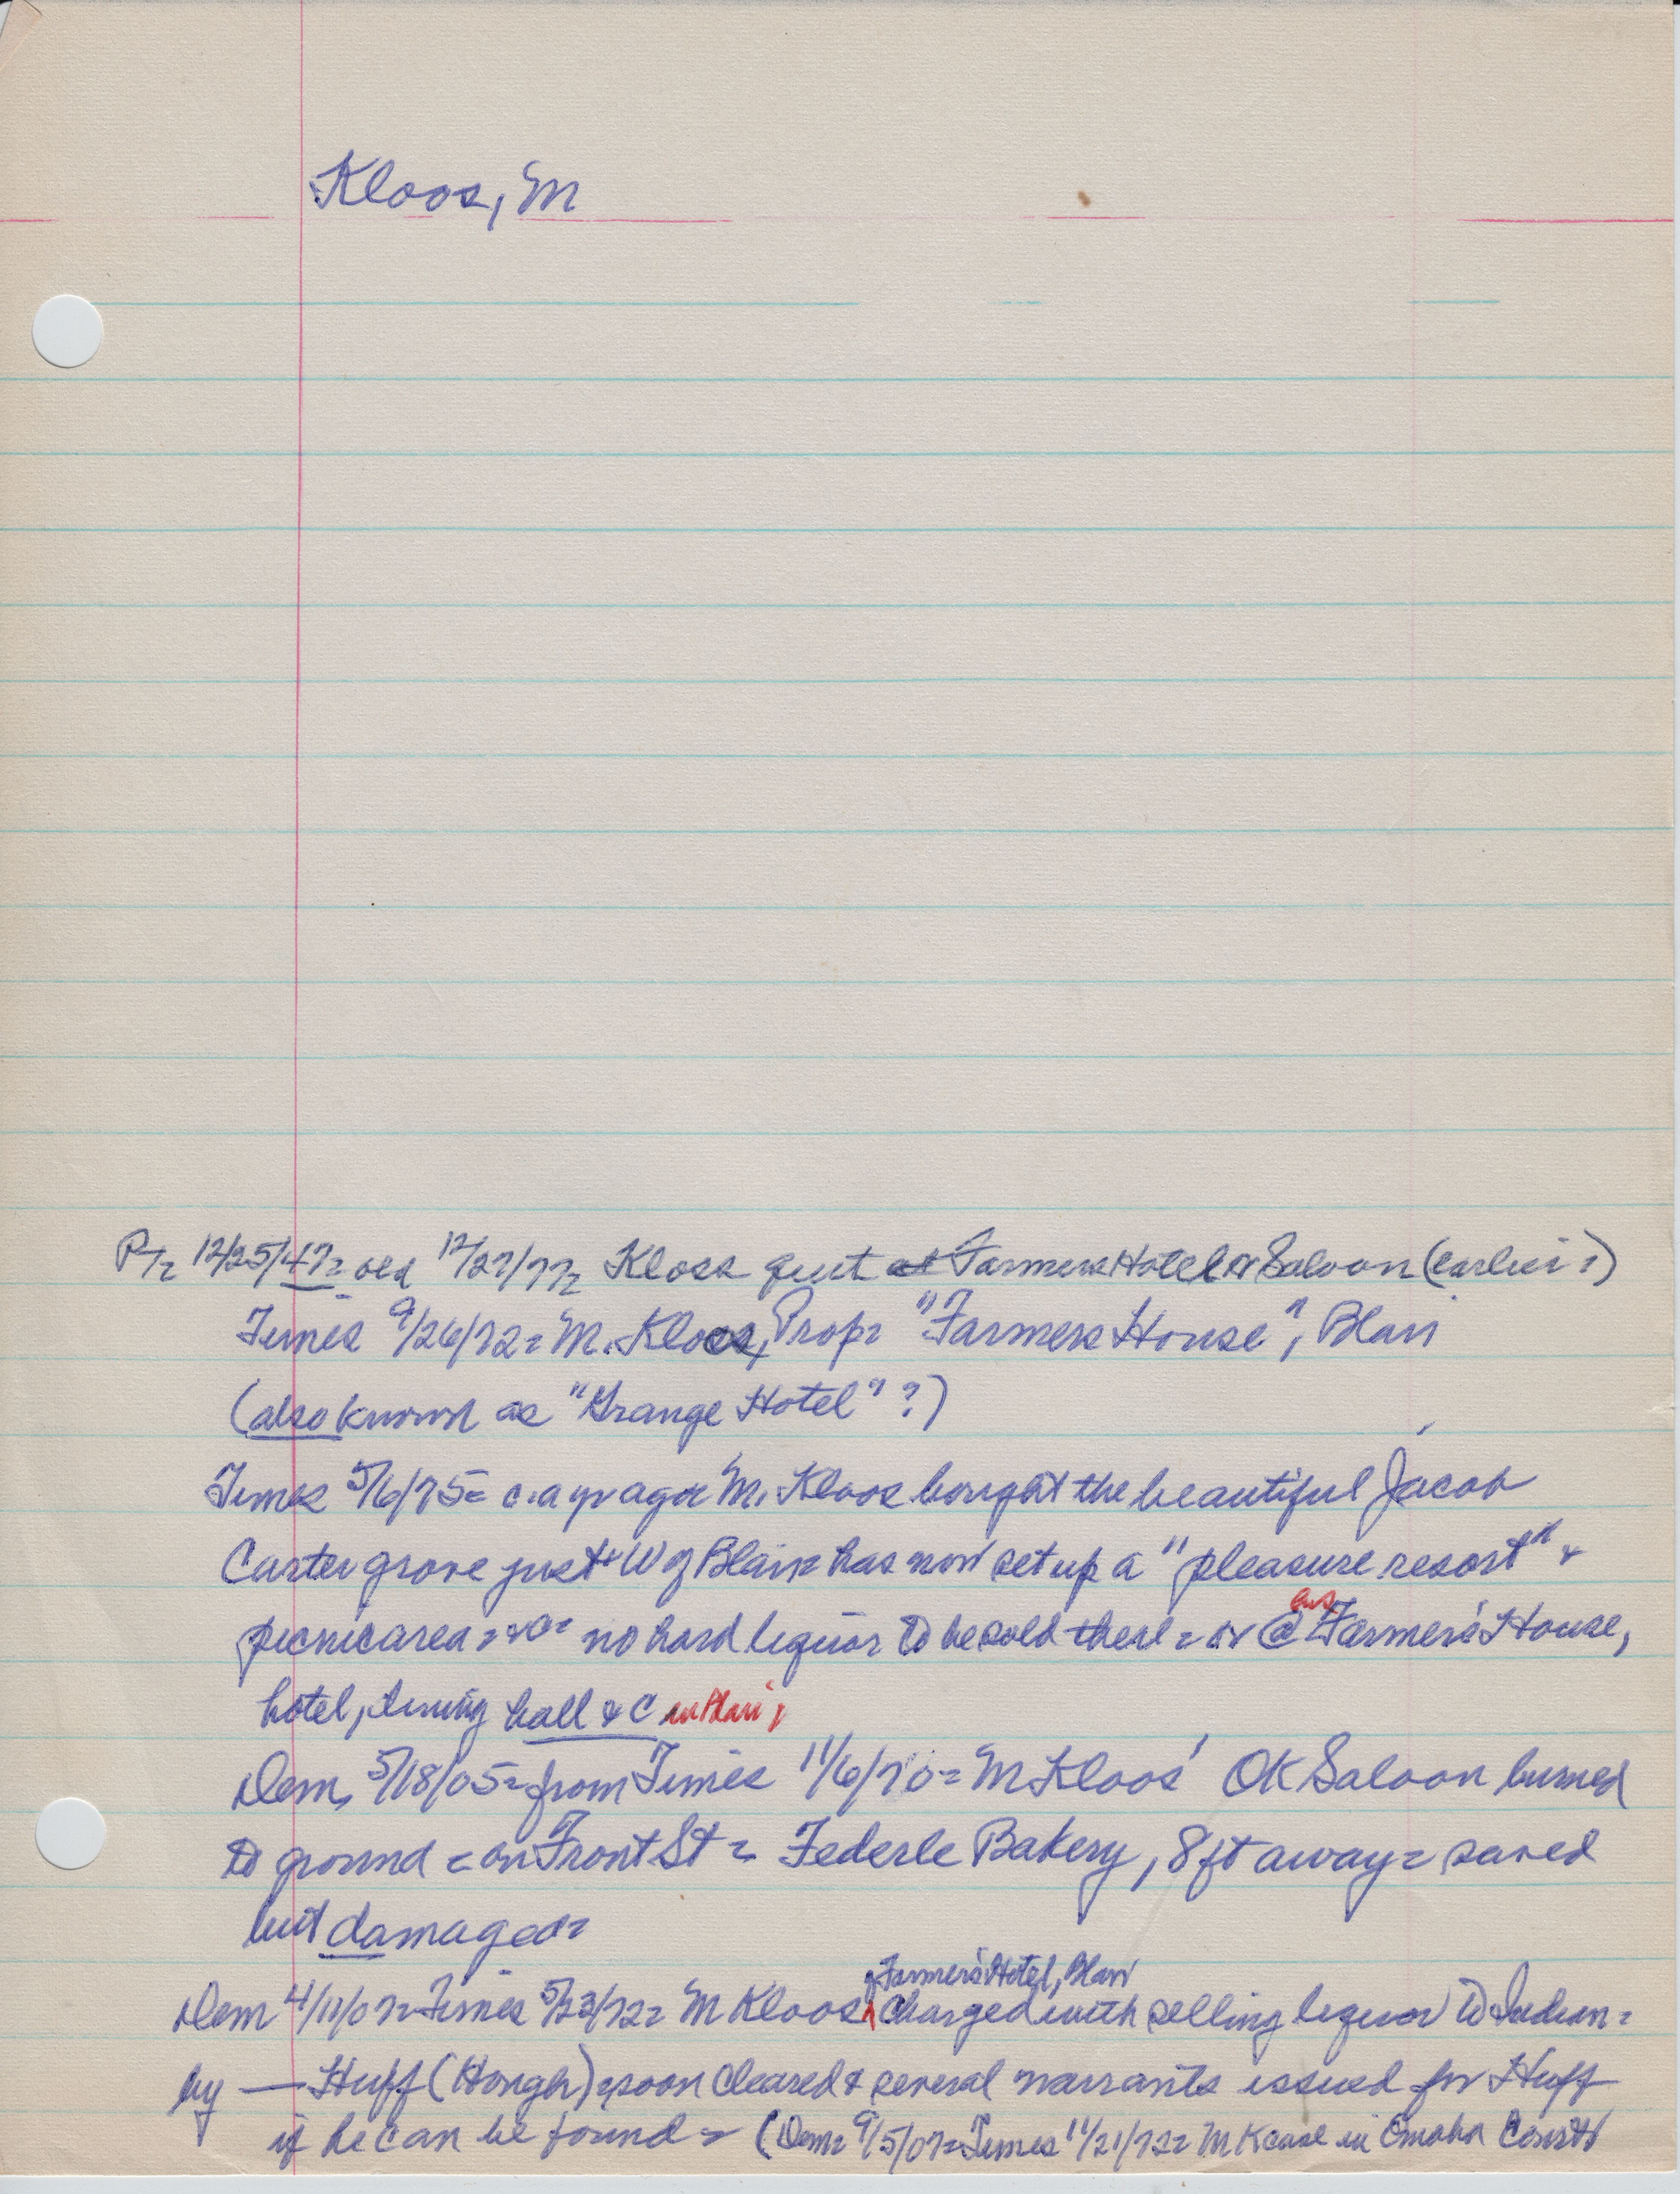 Kloos, M
PT= 12/25/47= old 12/27/77= Kloss quit at Farmers Hotel or Saloon (earlier?)
Times 9/26/72= M. Kloos, Prop= "Farmers House", Blair
(also known as "Grange Hotel"?)
Times 5/6/75= c. a yr ago M. Kloos bought the beautiful Jacob
Carter grove just W of Blair= has now set up a "pleasure resort" &
picnic area= no hard liquor to be sold there= or @ his Farmer's House,
hotel, dining hall &c in Blair;
Dem, 5/18/05= from Times 11/6/70= M Kloos' OK Saloon burned
to ground = on Front St = Federle Bakery, 8 ft away= saved
but damaged=
Dem 4/11/07= Times 5/23/72= M Kloos of Farmer's Hotel, Blair charged with selling liquor to Indian=
by — Huff (Hough)= soon cleared & several warrants issued for Huff
if he can be found = (Dem= 9/5/07= Times 11/21/72= M K case in Omaha Court)